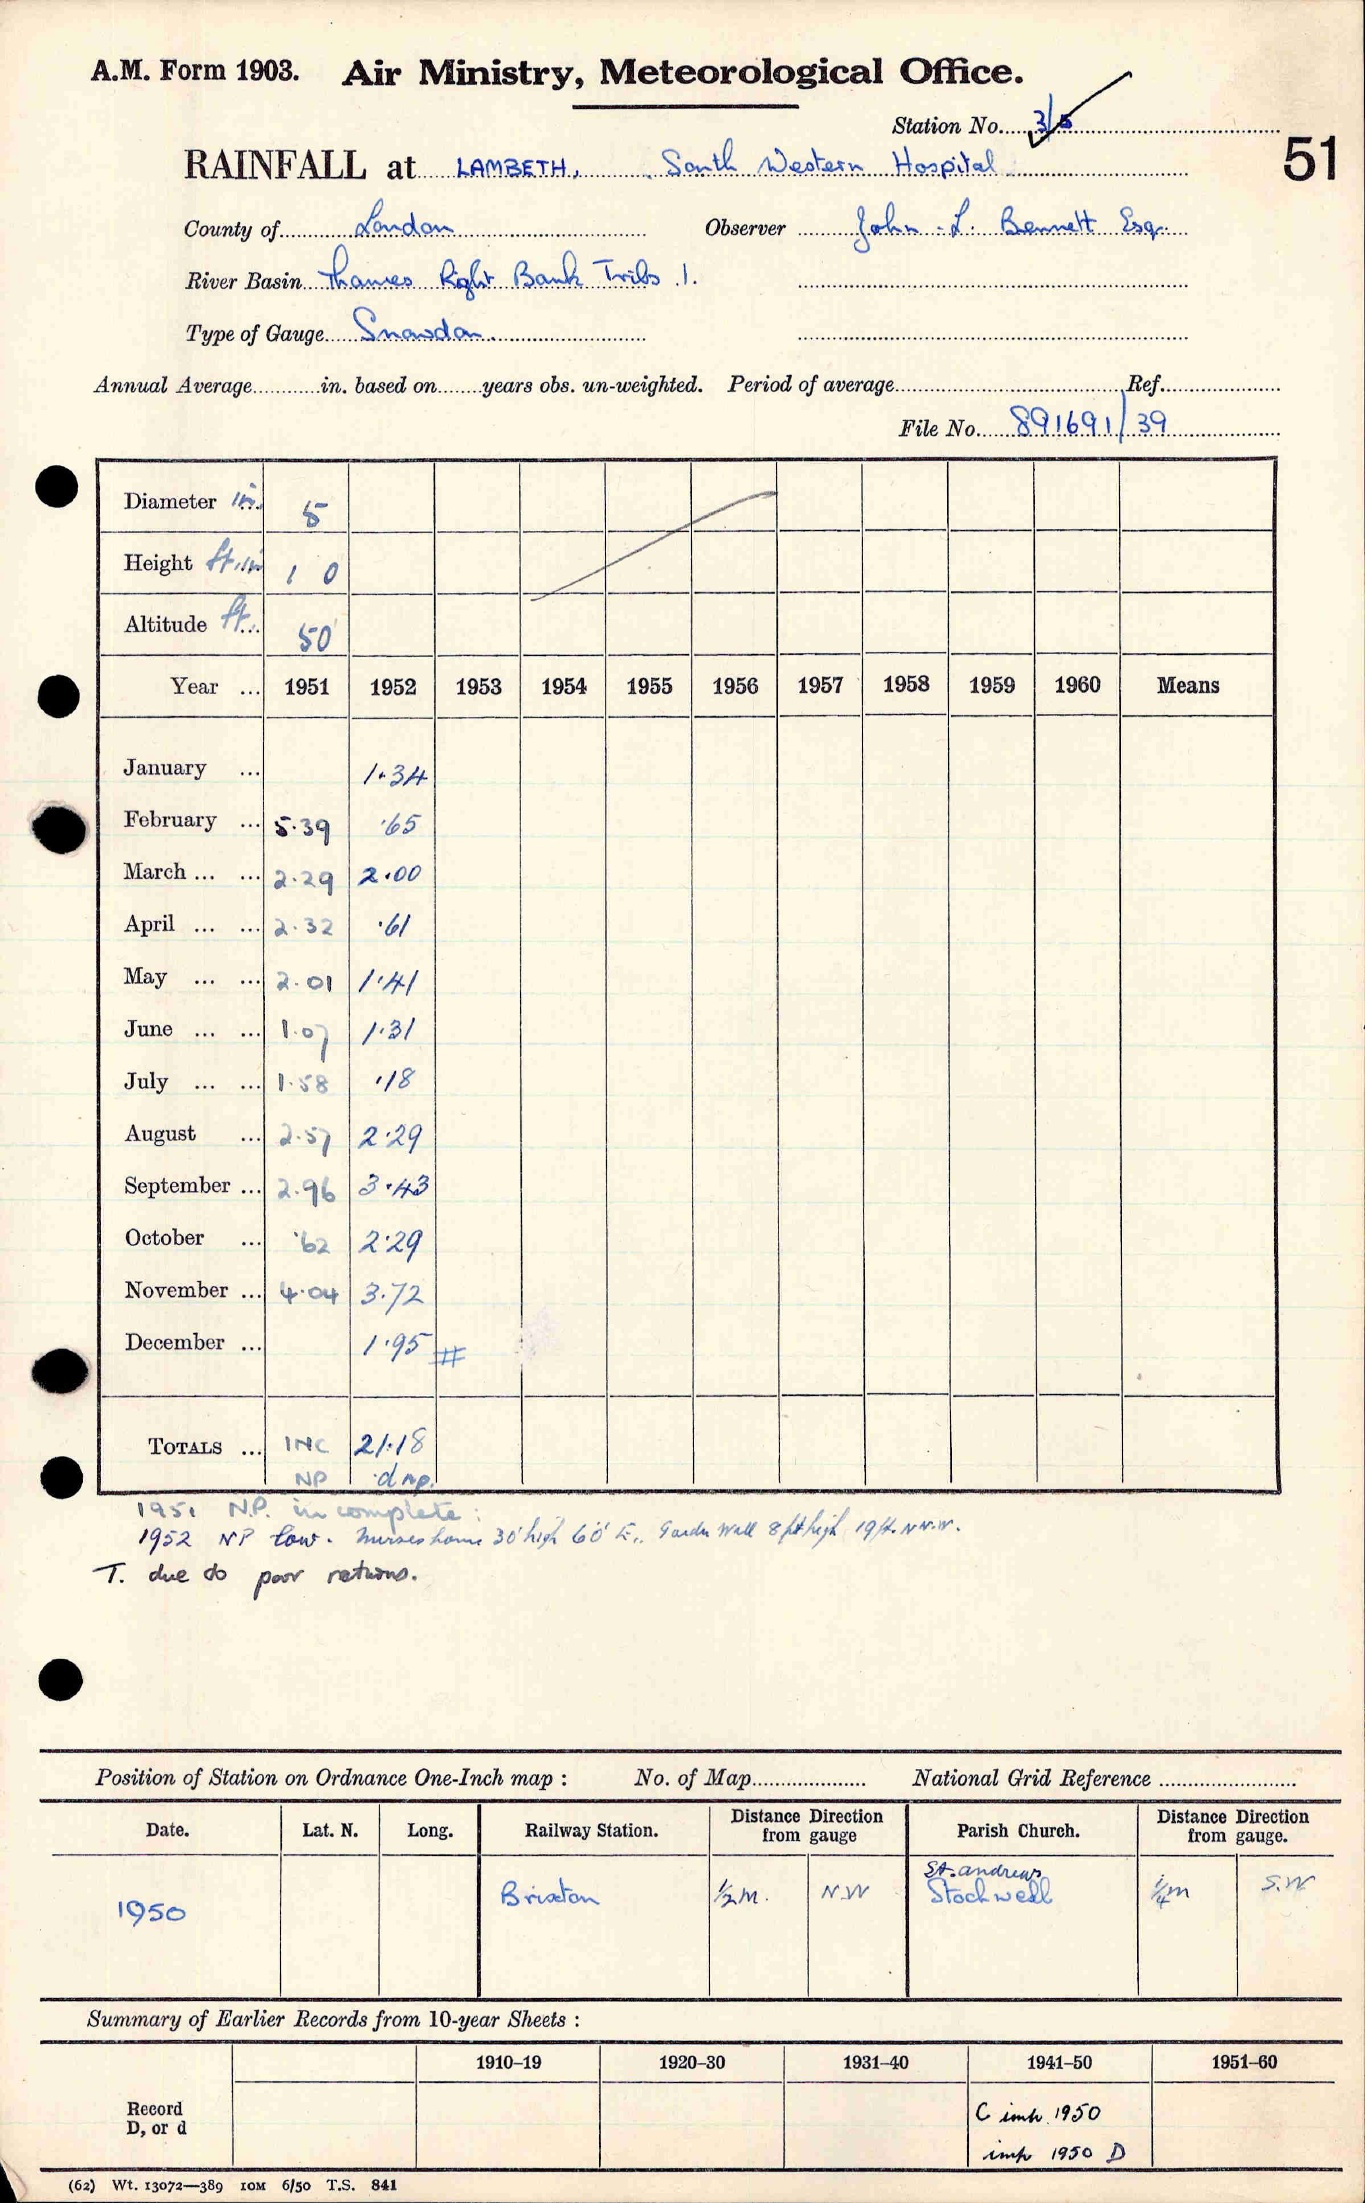 A.M. Form 1903. Air Ministry, Meteorological Office.
Station No. 3/5
51
RAINFALL at LAMBETH, South Western Hospital
County of London Observer John L. Bennett Esq.
River Basin Thames Right Bank Tribs 1.
Type of Gauge Snowdon
Annual Average in. based on years obs. un-weighted. Period of average Ref.
File No. 891691/39
Diameter in. 5
Height ft. in 1 0
Altitude ft. 50
Year ... 1951 1952 1953 1954 1955 1956 1957 1958 1959 1960 Means
January ... 1.34
February ... 5.39 .65
March ... ... 2.29 2.00
April ... ... 2.32 .61
May ... ... 2.01 1.41
June ... ... 1.07 1.31
July ... ... 1.58 .18
August ... 2.57 2.29
September ... 2.96 3.43
October ... .62 2.29
November ... 4.04 3.72
December ... 1.95 #
TOTALS ... INC 21.18
NP d np.
1951 N.P. incomplete:
1952 NP low. Nurses home 30' high 60' E., Garden Wall 8 ft high 19 ft. N.N.W.
T. due to poor returns.
Position of Station on Ordnance One-Inch map : No. of Map National Grid Reference
Date. Lat. N. Long. Railway Station. Distance Direction from gauge Parish Church. Distance Direction from gauge.
1950 Brixton ½ m. N.W St. Andrews Stockwell ¼ m S.W
Summary of Earlier Records from 10-year Sheets :
1910–19 1920–30 1931–40 1941–50 1951–60
Record D, or d
C imp. 1950
imp 1950 D
(62) Wt. 13072—389 10M 6/50 T.S. 841